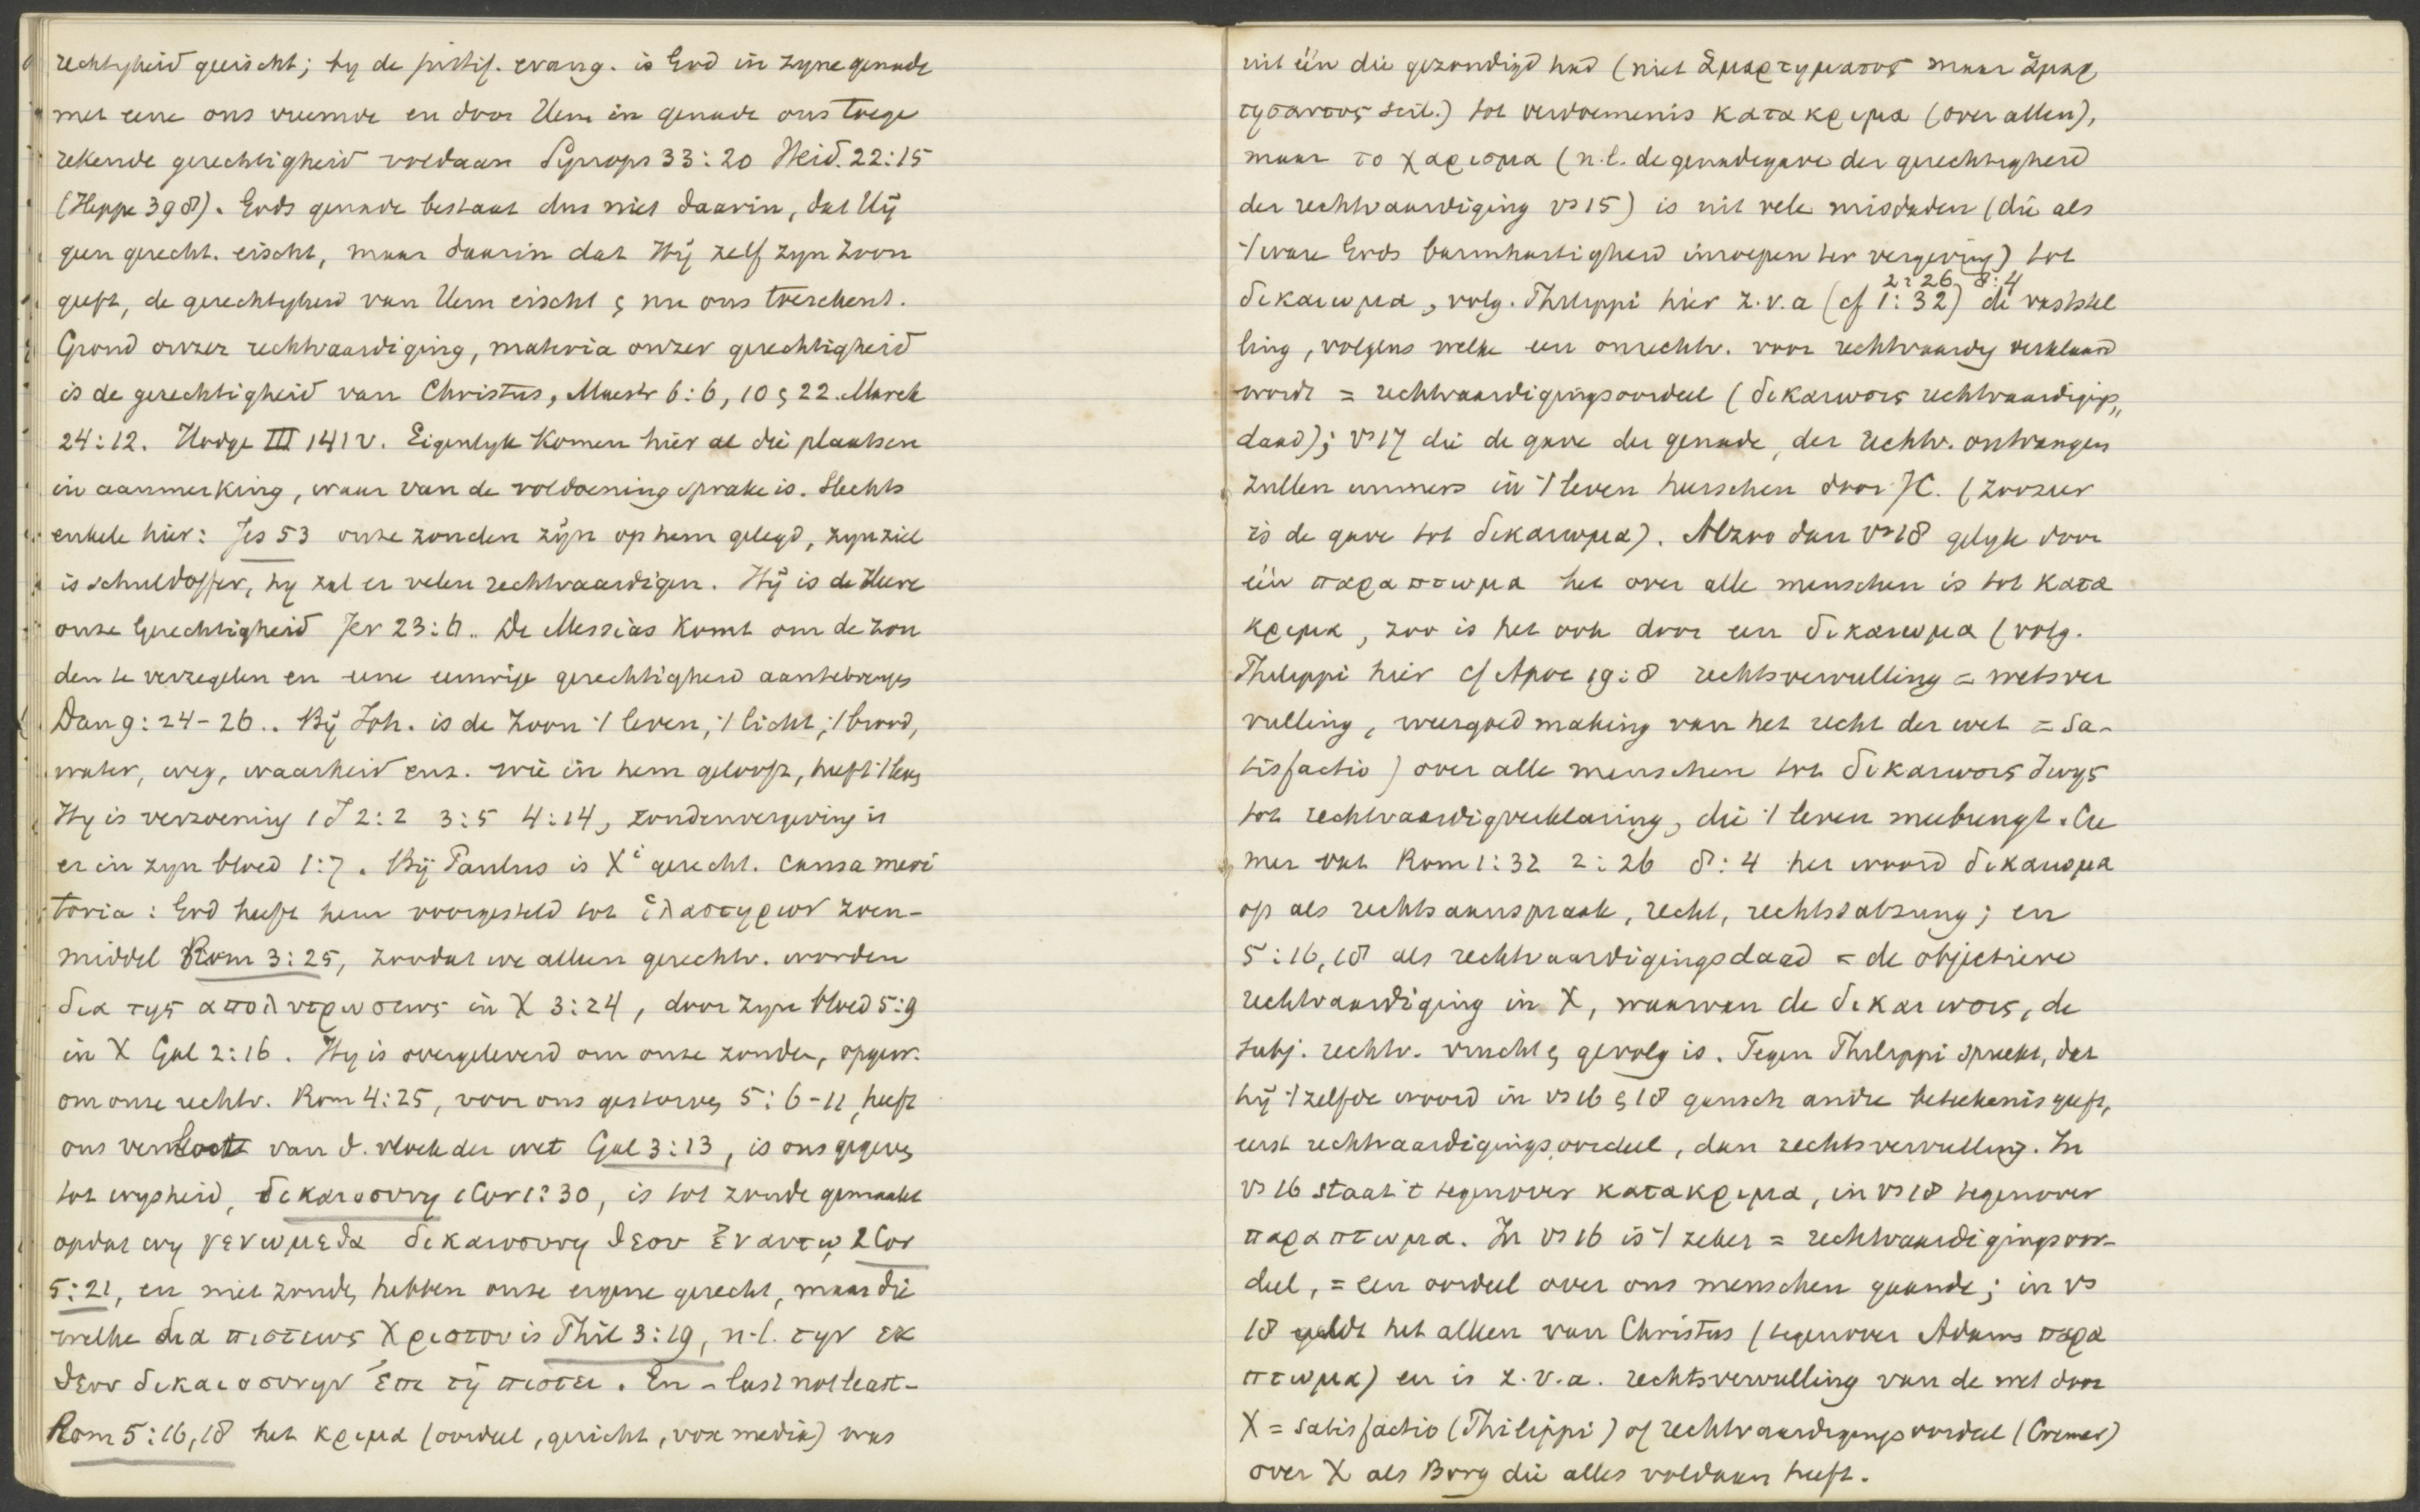 rechtigheid geëischt; by de justif. evang. is God in zyne genade
met eene ons vreemde en door Hem in genade ons toege
rekende gerechtigheid voldaan Synops 33:20 Heid. 22:15
(Heppe 398). Gods genade bestaat dus niet daarin, dat Hij
geen gerecht. eischt, maar daarin dat Hij zelf zyn Zoon
geeft, de gerechtigheid van Hem eischt & nu ons toeschenkt.
Grond onzer rechtvaardiging, materia onzer gerechtigheid
is de gerechtigheid van Christus, Maestr 6:6, 10 & 22. Marck
24:12. Hodge III 141 v. Eigenlyk komen hier al die plaatsen
in aanmerking, waar van de voldoening sprake is. Slechts
enkele hier: Jes 53 onze zonden zijn op hem gelegd, zyn ziel
is schuldoffer, hy zal er velen rechtvaardigen. Hij is de Heere
onze Gerechtigheid Jer 23:6.. De Messias komt om de zon
den te verzegelen en eene eeuwige gerechtigheid aantebrengen
Dan 9:24-26.. Bij Joh. is de Zoon 't leven, 't licht, 't brood,
water, weg, waarheid enz. wie in hem gelooft, heeft 't leven
Hy is verzoening 1 J 2:2 3:5 4:14, zondenvergeving is
er in zyn bloed 1:7. Bij Paulus is Xi gerecht. causa meri
toria: God heeft hem voorgesteld tot ἱλαστηριον zoen-
middel Rom 3:25, zoodat we alleen gerechtv. worden
δια της απολυτρωσεως in X 3:24, door zyn bloed 5:9
in X Gal 2:16. Hy is overgeleverd om onze zonden, opgew.
om onze rechtv. Rom 4:25, voor ons gestorven 5:6-11, heeft
ons verlost van d. vloek der wet Gal 3:13, is ons gegeven
tot wysheid, δικαιοσυνη 1 Cor 1:30, is tot zonde gemaakt
opdat wy γενωμεθα δικαιοσυνη θεου ἐν αυτῳ 2 Cor
5:21, en niet zonde, hebben onze eigene gerecht, maar die
welke δια πιστεως Χριστου is Phil 3:19, n.l. την εκ
θεου δικαιοσυνην ἐπι τῃ πιστει. En - last not least -
Rom 5:16,18 het κριμα (oordeel, gericht, vox media) was
uit één die gezondigd had (niet ἁμαρτηματος maar ἁμαρ
τησαντος scil.) tot verdoemenis κατακριμα (over allen),
maar το χαρισμα (n.l. de genadegave der gerechtigheid
der rechtvaardiging vs 15) is uit vele misdaden (die als
't ware Gods barmhartigheid inroepen ter vergeving) tot
2:26 8:4
δικαιωμα, volg. Philippi hier z.v.a (cf 1:32) de vaststel
ling, volgens welke een onrechtv. voor rechtvaardig verklaard
wordt = rechtvaardigingsoordeel (δικαιωσις rechtvaardigings„
daad); vs 17 die de gave der genade, der rechtv. ontvangen
zullen immers in 't leven heerschen door JC. (zoozeer
is de gave tot δικαιωμα). Alzoo dan vs 18 gelyk door
één παραπτωμα het over alle menschen is tot κατα
κριμα, zoo is het ook door een δικαιωμα (volg.
Philippi hier cf Apoc 19:8 rechtsvervulling = wetsver
vulling, weergoedmaking van het recht der wet = sa-
tisfactio) over alle menschen tot δικαιωσις ζωης
tot rechtvaardigverklaring, die 't leven meebrengt. Cre
mer vat Rom 1:32 2:26 8:4 het woord δικαιωμα
op als rechtsaanspraak, recht, rechtssatzung; en
5:16,18 als rechtvaardigingsdaad = de objectieve
rechtvaardiging in X, waarvan de δικαιωσις, de
subj. rechtv. vrucht & gevolg is. Tegen Philippi spreekt, dat
hij 't zelfde woord in vs 16 & 18 gansch andre beteekenis geeft,
eerst rechtvaardigingsoordeel, dan rechtsvervulling. In
vs 16 staat 't tegenover κατακριμα, in vs 18 tegenover
παραπτωμα. In vs 16 is 't zeker = rechtvaardigingsoor-
deel, = een oordeel over ons menschen gaande; in vs
18 geldt het alleen van Christus (tegenover Adams παρα
πτωμα) en is z.v.a. rechtsvervulling van de wet door
X = satisfactio (Philippi) of rechtvaardigingsoordeel (Cremer)
over X als Borg die alles voldaan heeft.